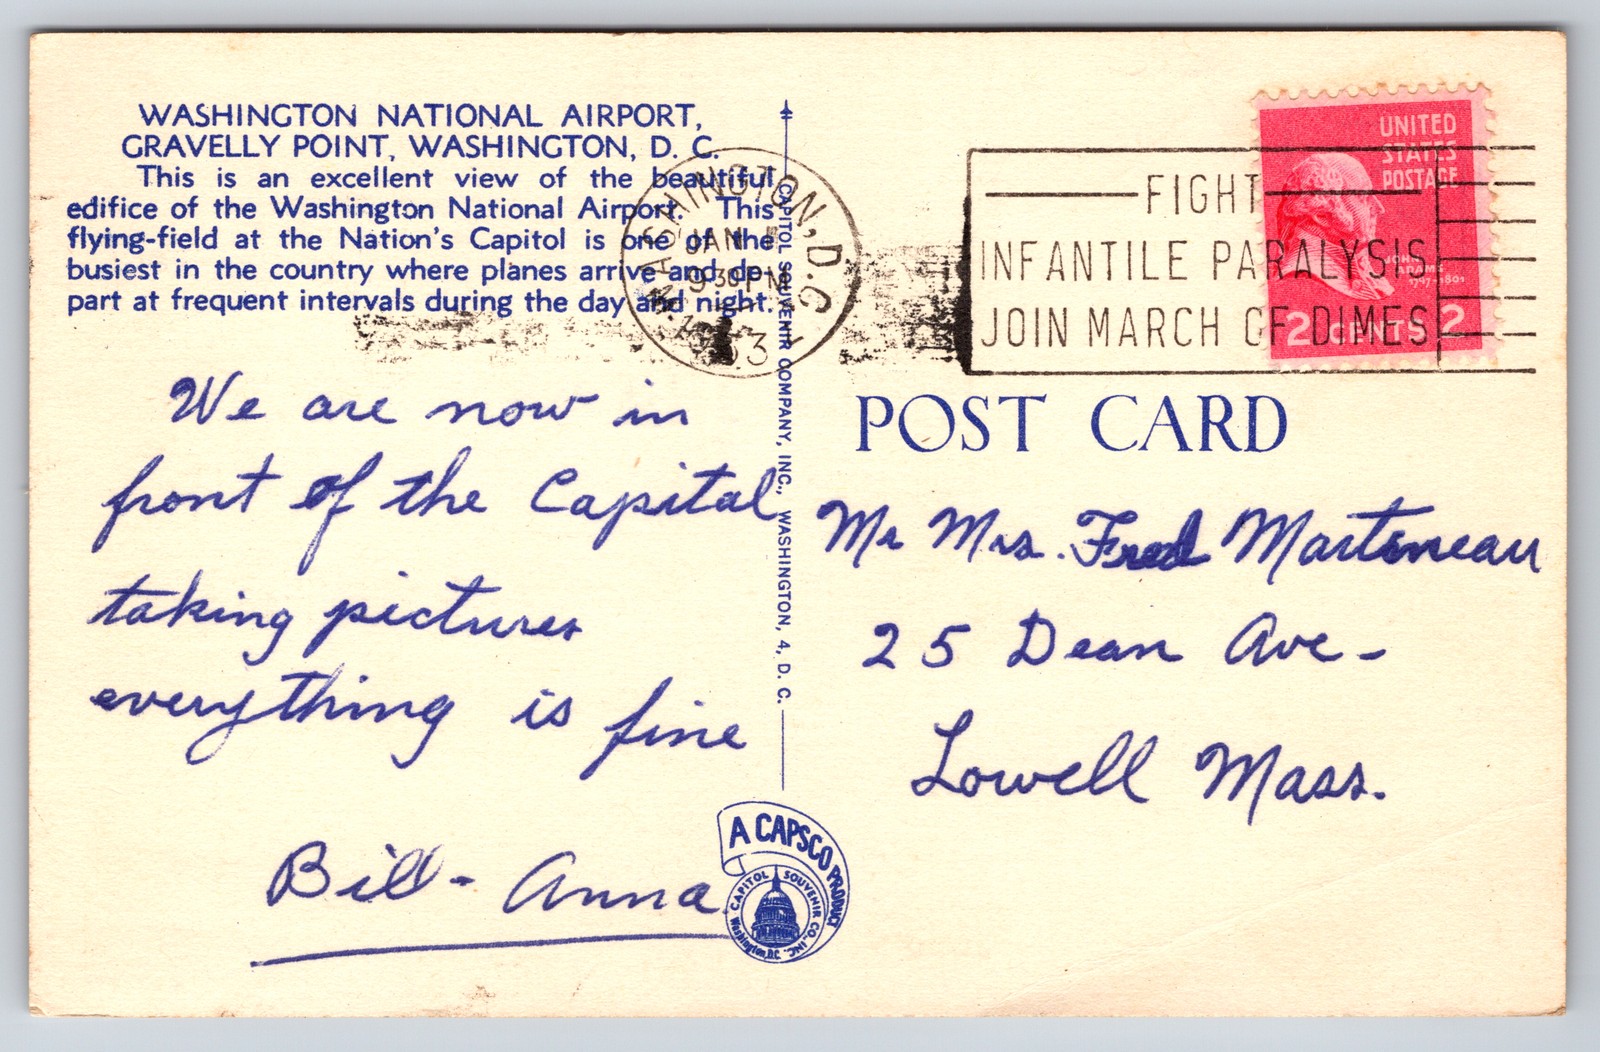 WASHINGTON NATIONAL AIRPORT,
GRAVELLY POINT, WASHINGTON, D. C.
This is an excellent view of the beautiful
edifice of the Washington National Airport. This
flying-field at the Nation's Capitol is one of the
busiest in the country where planes arrive and de-
part at frequent intervals during the day and night.
We are now in
front of the Capital
taking pictures
everything is fine
Bill - Anna
CAPITOL SOUVENIR COMPANY, INC., WASHINGTON, 4, D. C.
A CAPSCO PRODUCT
CAPITOL SOUVENIR CO. INC.
Washington, D.C.
WASHINGTON, D.C.
JAN 5
9 30 PM
53
FIGHT
INFANTILE PARALYSIS
JOIN MARCH OF DIMES
UNITED
STATES
POSTAGE
JOHN
ADAMS
1797-1801
2 CENTS 2
POST CARD
Mr Mrs. Fred Martineau
25 Dean Ave -
Lowell Mass.